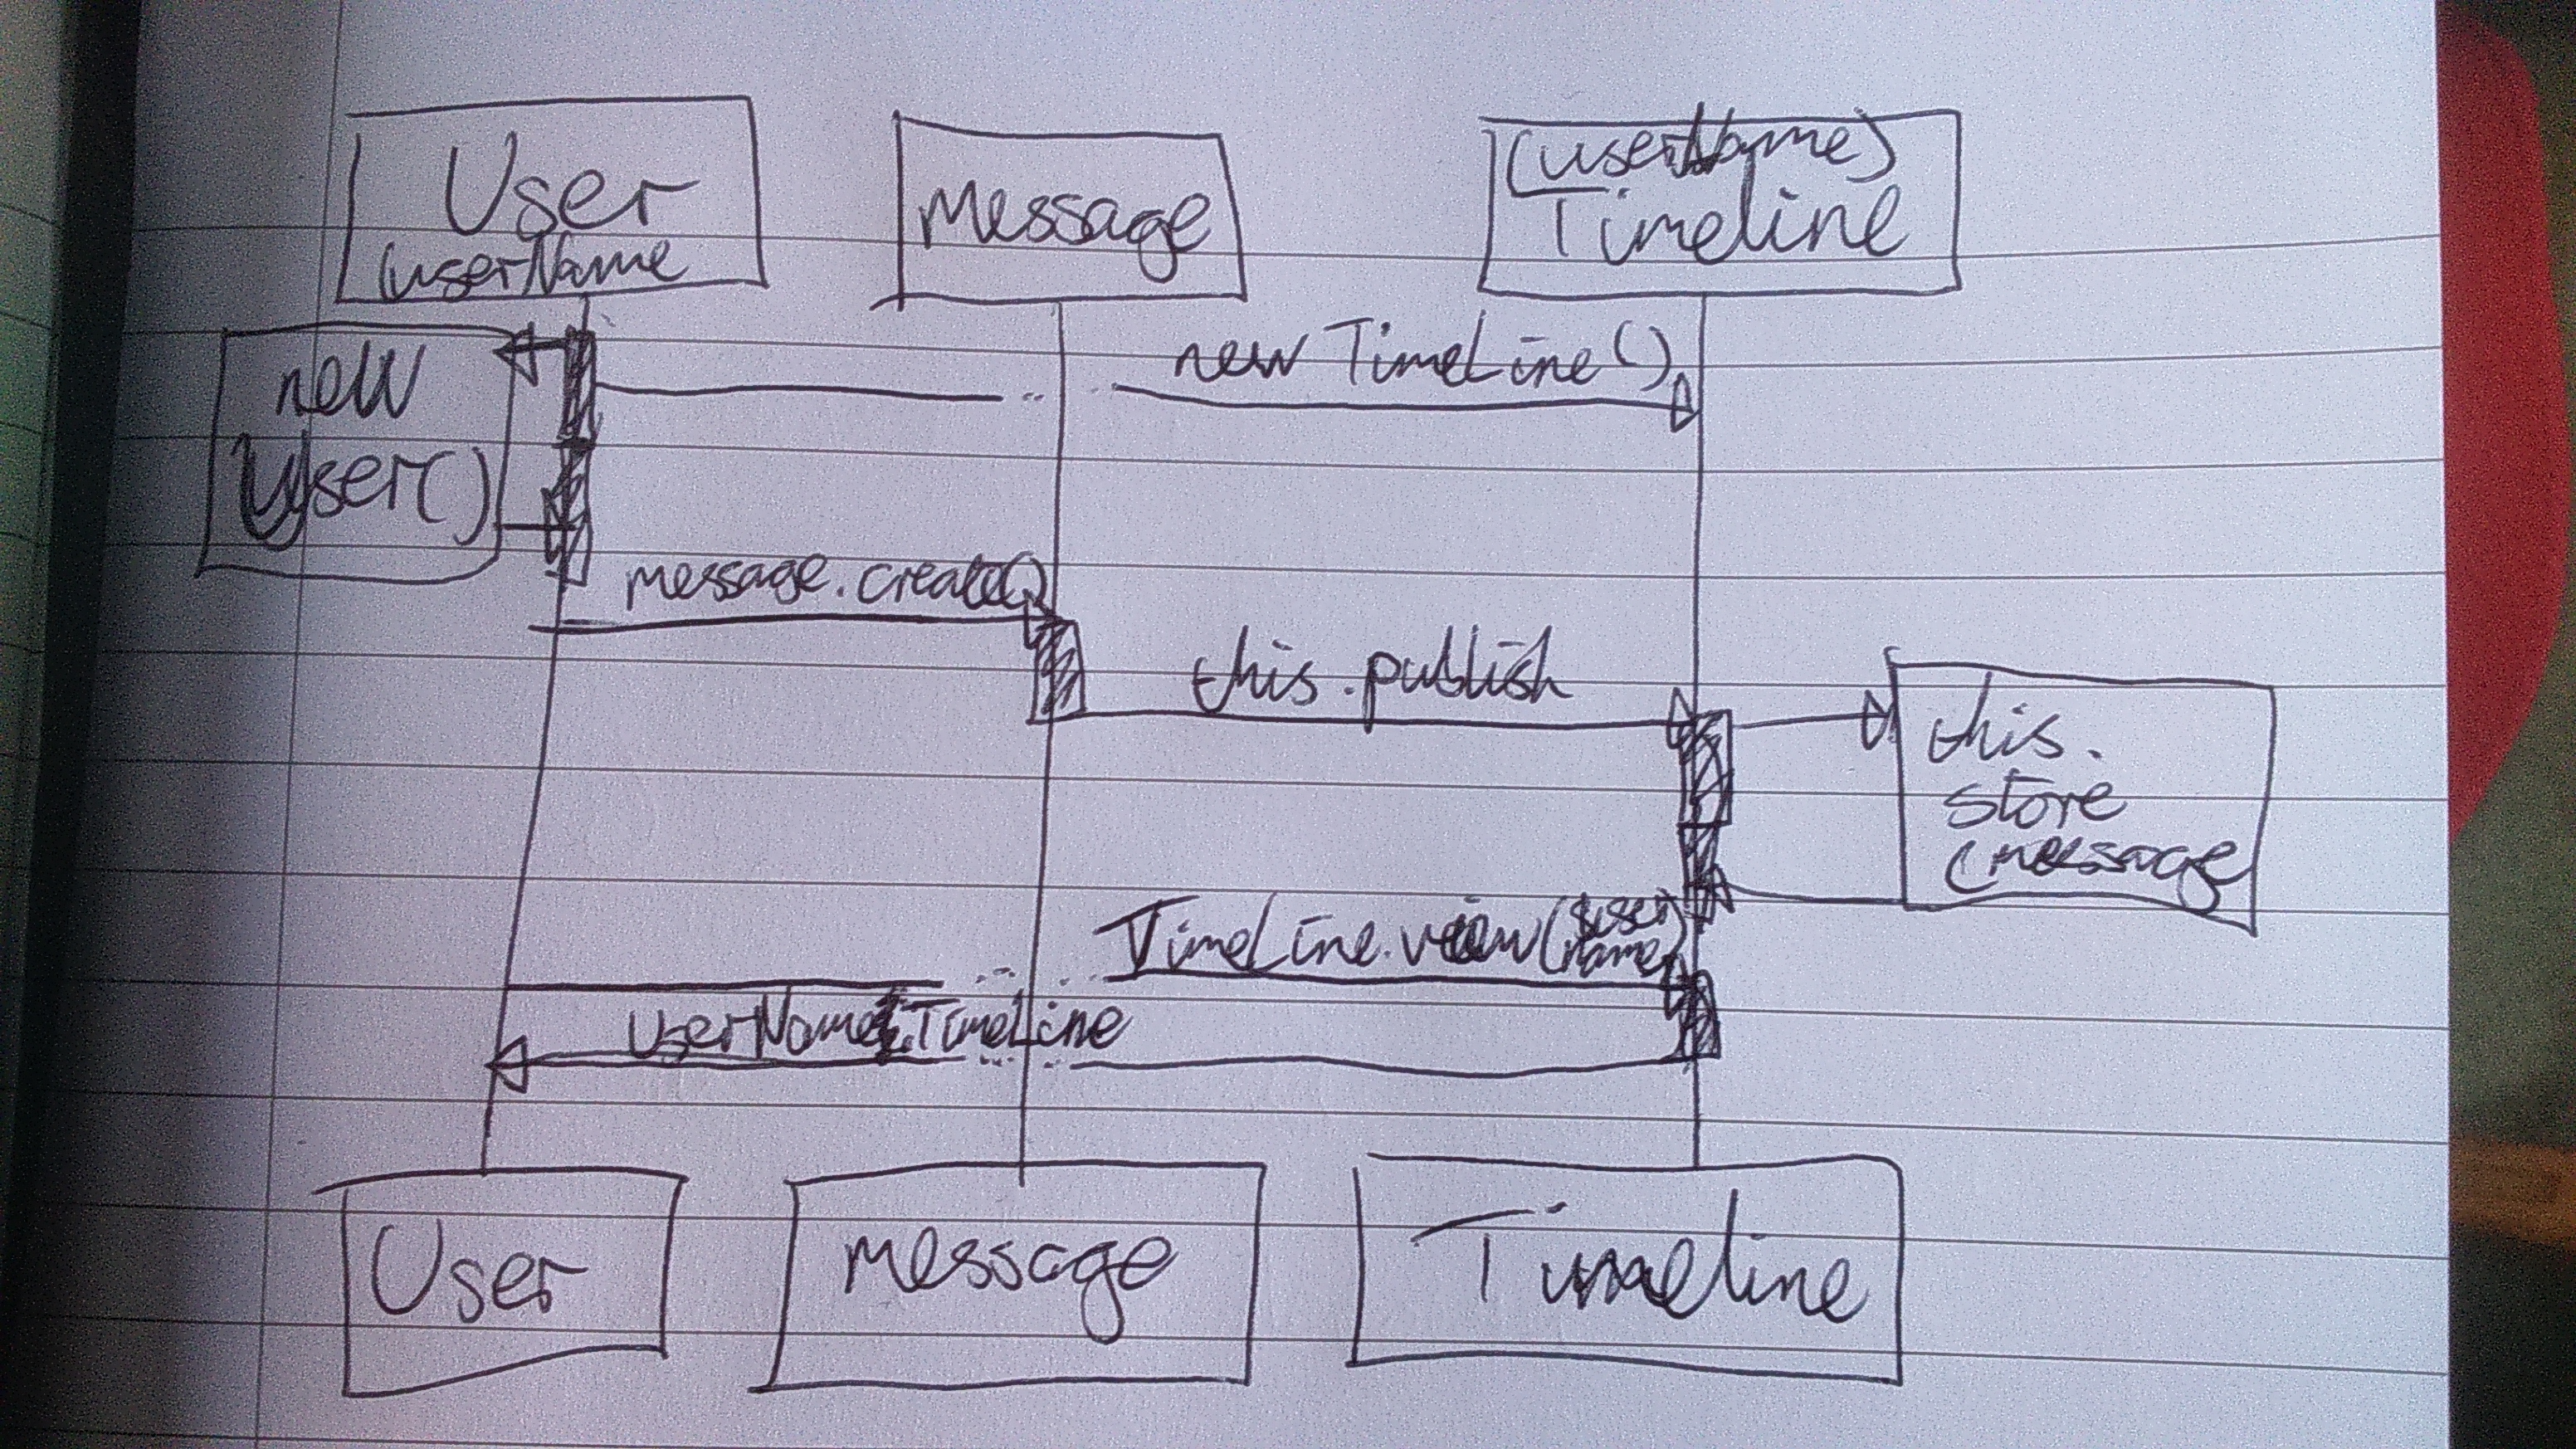 User
(userName
Message
(userName)
Timeline
new
User()
new TimeLine()
message.create()
this.publish
this.
store
(message
TimeLine.view(user
name)
userName.TimeLine
User
message
Timeline